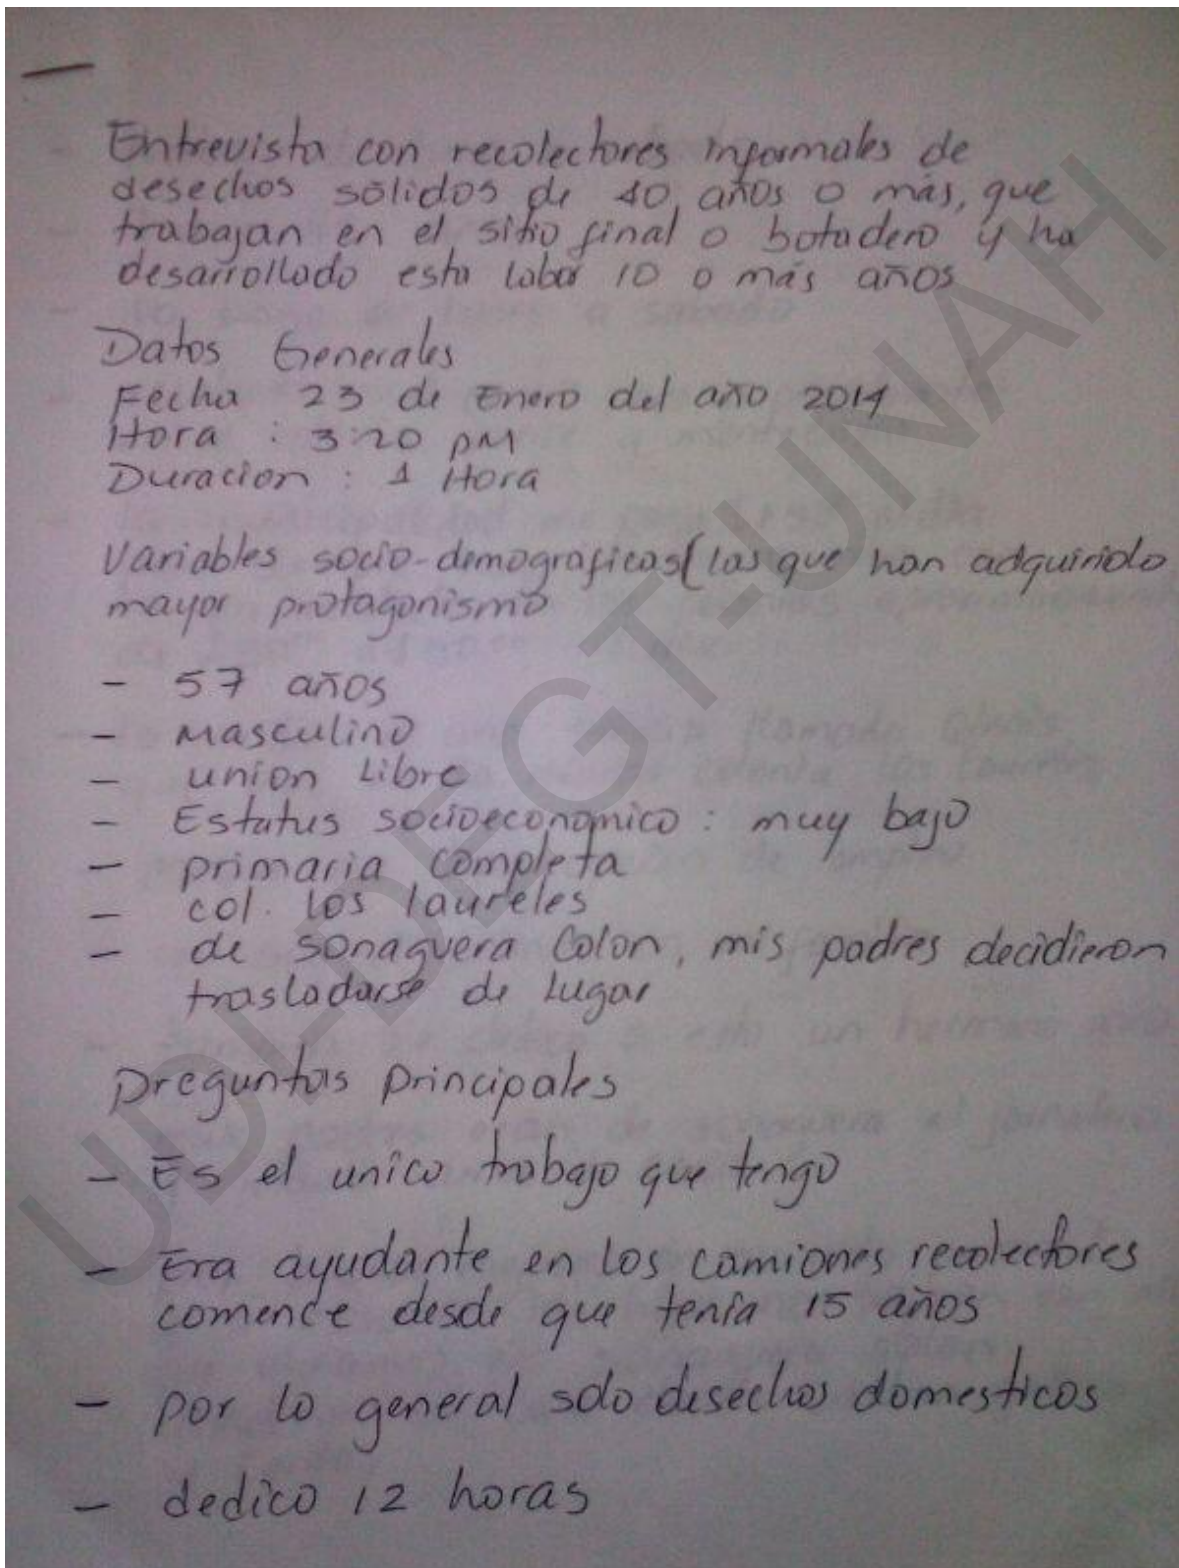 Entrevista con recolectores informales de
desechos solidos de 40 años o más, que
trabajan en el sitio final o botadero y ha
desarrollado esta labor 10 o más años
Datos Generales
Fecha 23 de Enero del año 2014
Hora : 3:20 pM
Duracion : 1 Hora
Variables socio-demograficas (las que han adquirido
mayor protagonismo
- 57 años
- Masculino
- union Libre
- Estatus socioeconomico : muy bajo
- primaria completa
- col. los laureles
- de sonaguera Colon, mis padres decidieron
trasladarse de Lugar
preguntas principales
- Es el unico trabajo que tengo
- Era ayudante en los camiones recolectores
comence desde que tenía 15 años
- por lo general solo desechos domesticos
- dedico 12 horas
UDI-DEGT-UNAH